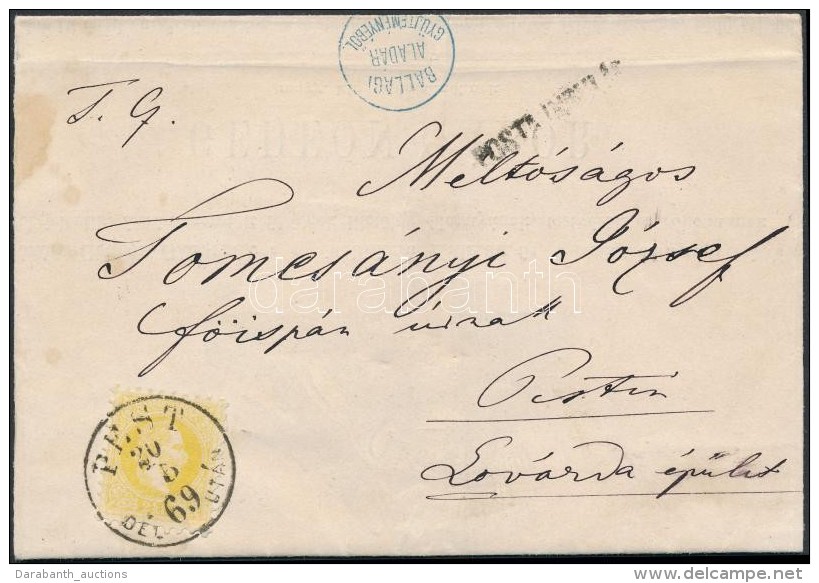 BALLAGI
ALADÁR
GYÜJTEMÉNYÉBŐL
T. G.
Méltóságos
Tomcsányi József
főispán úrnak
Pestin
Lovárda épület
PEST
20
5
69
UTÁN
darabanth
Darabanth_auctions
www.delcampe.net